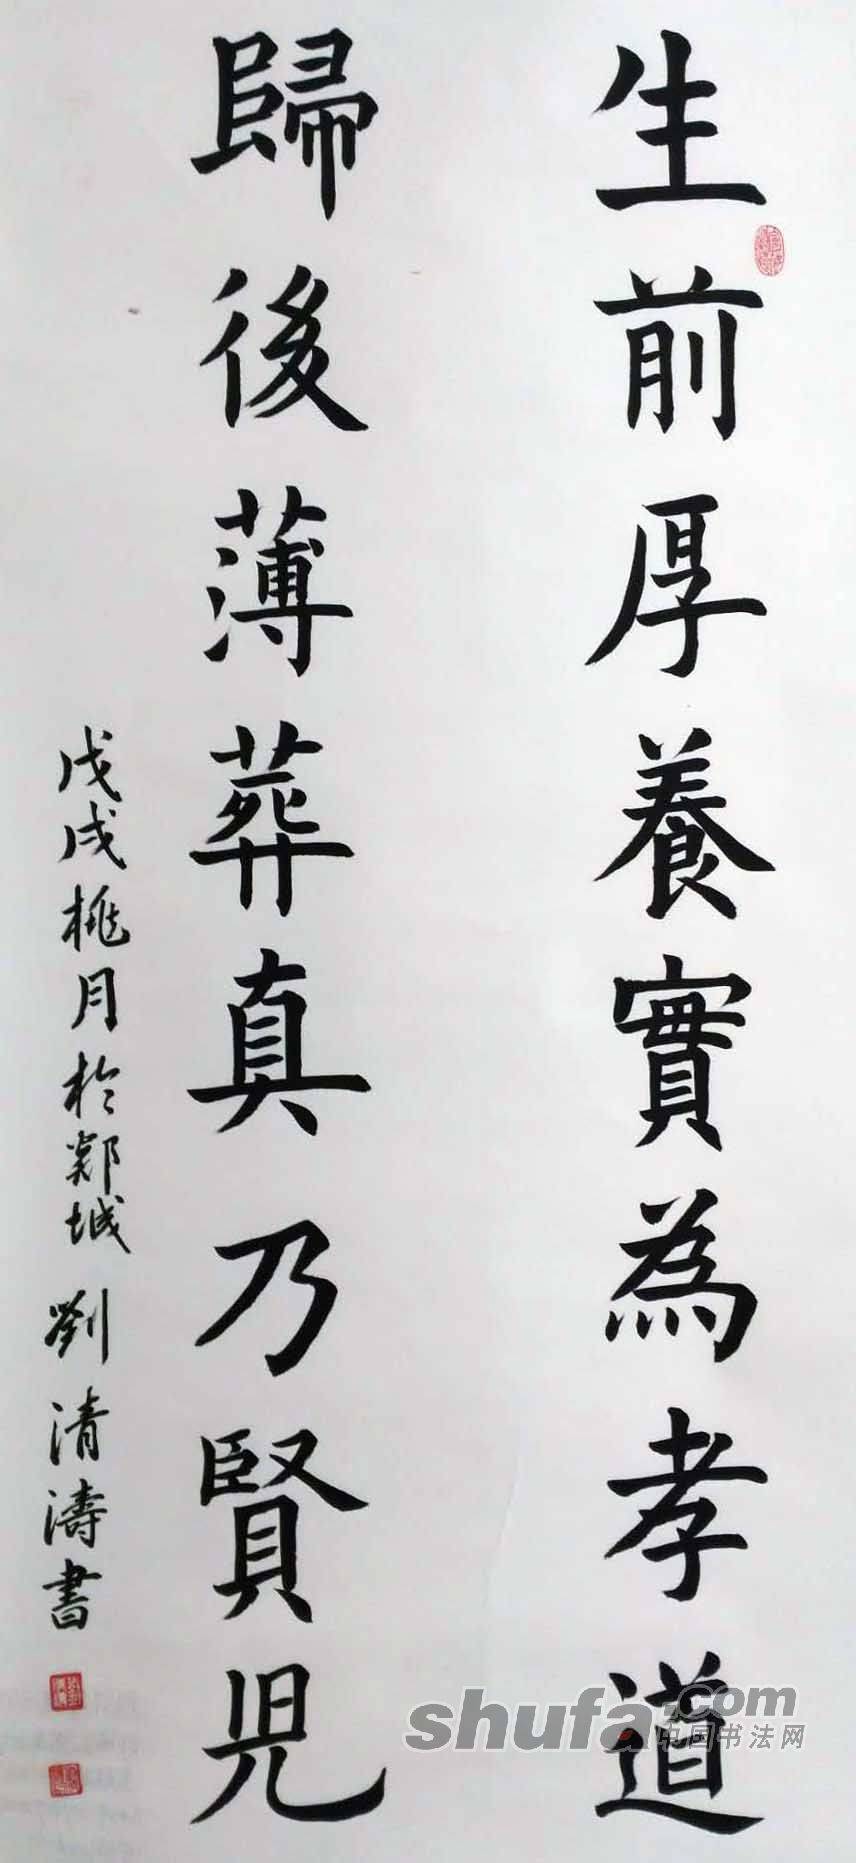 生前厚養實為孝道
歸後薄葬真乃賢児
戊戌桃月於鄴城劉清濤書
shufa.com
中国书法网